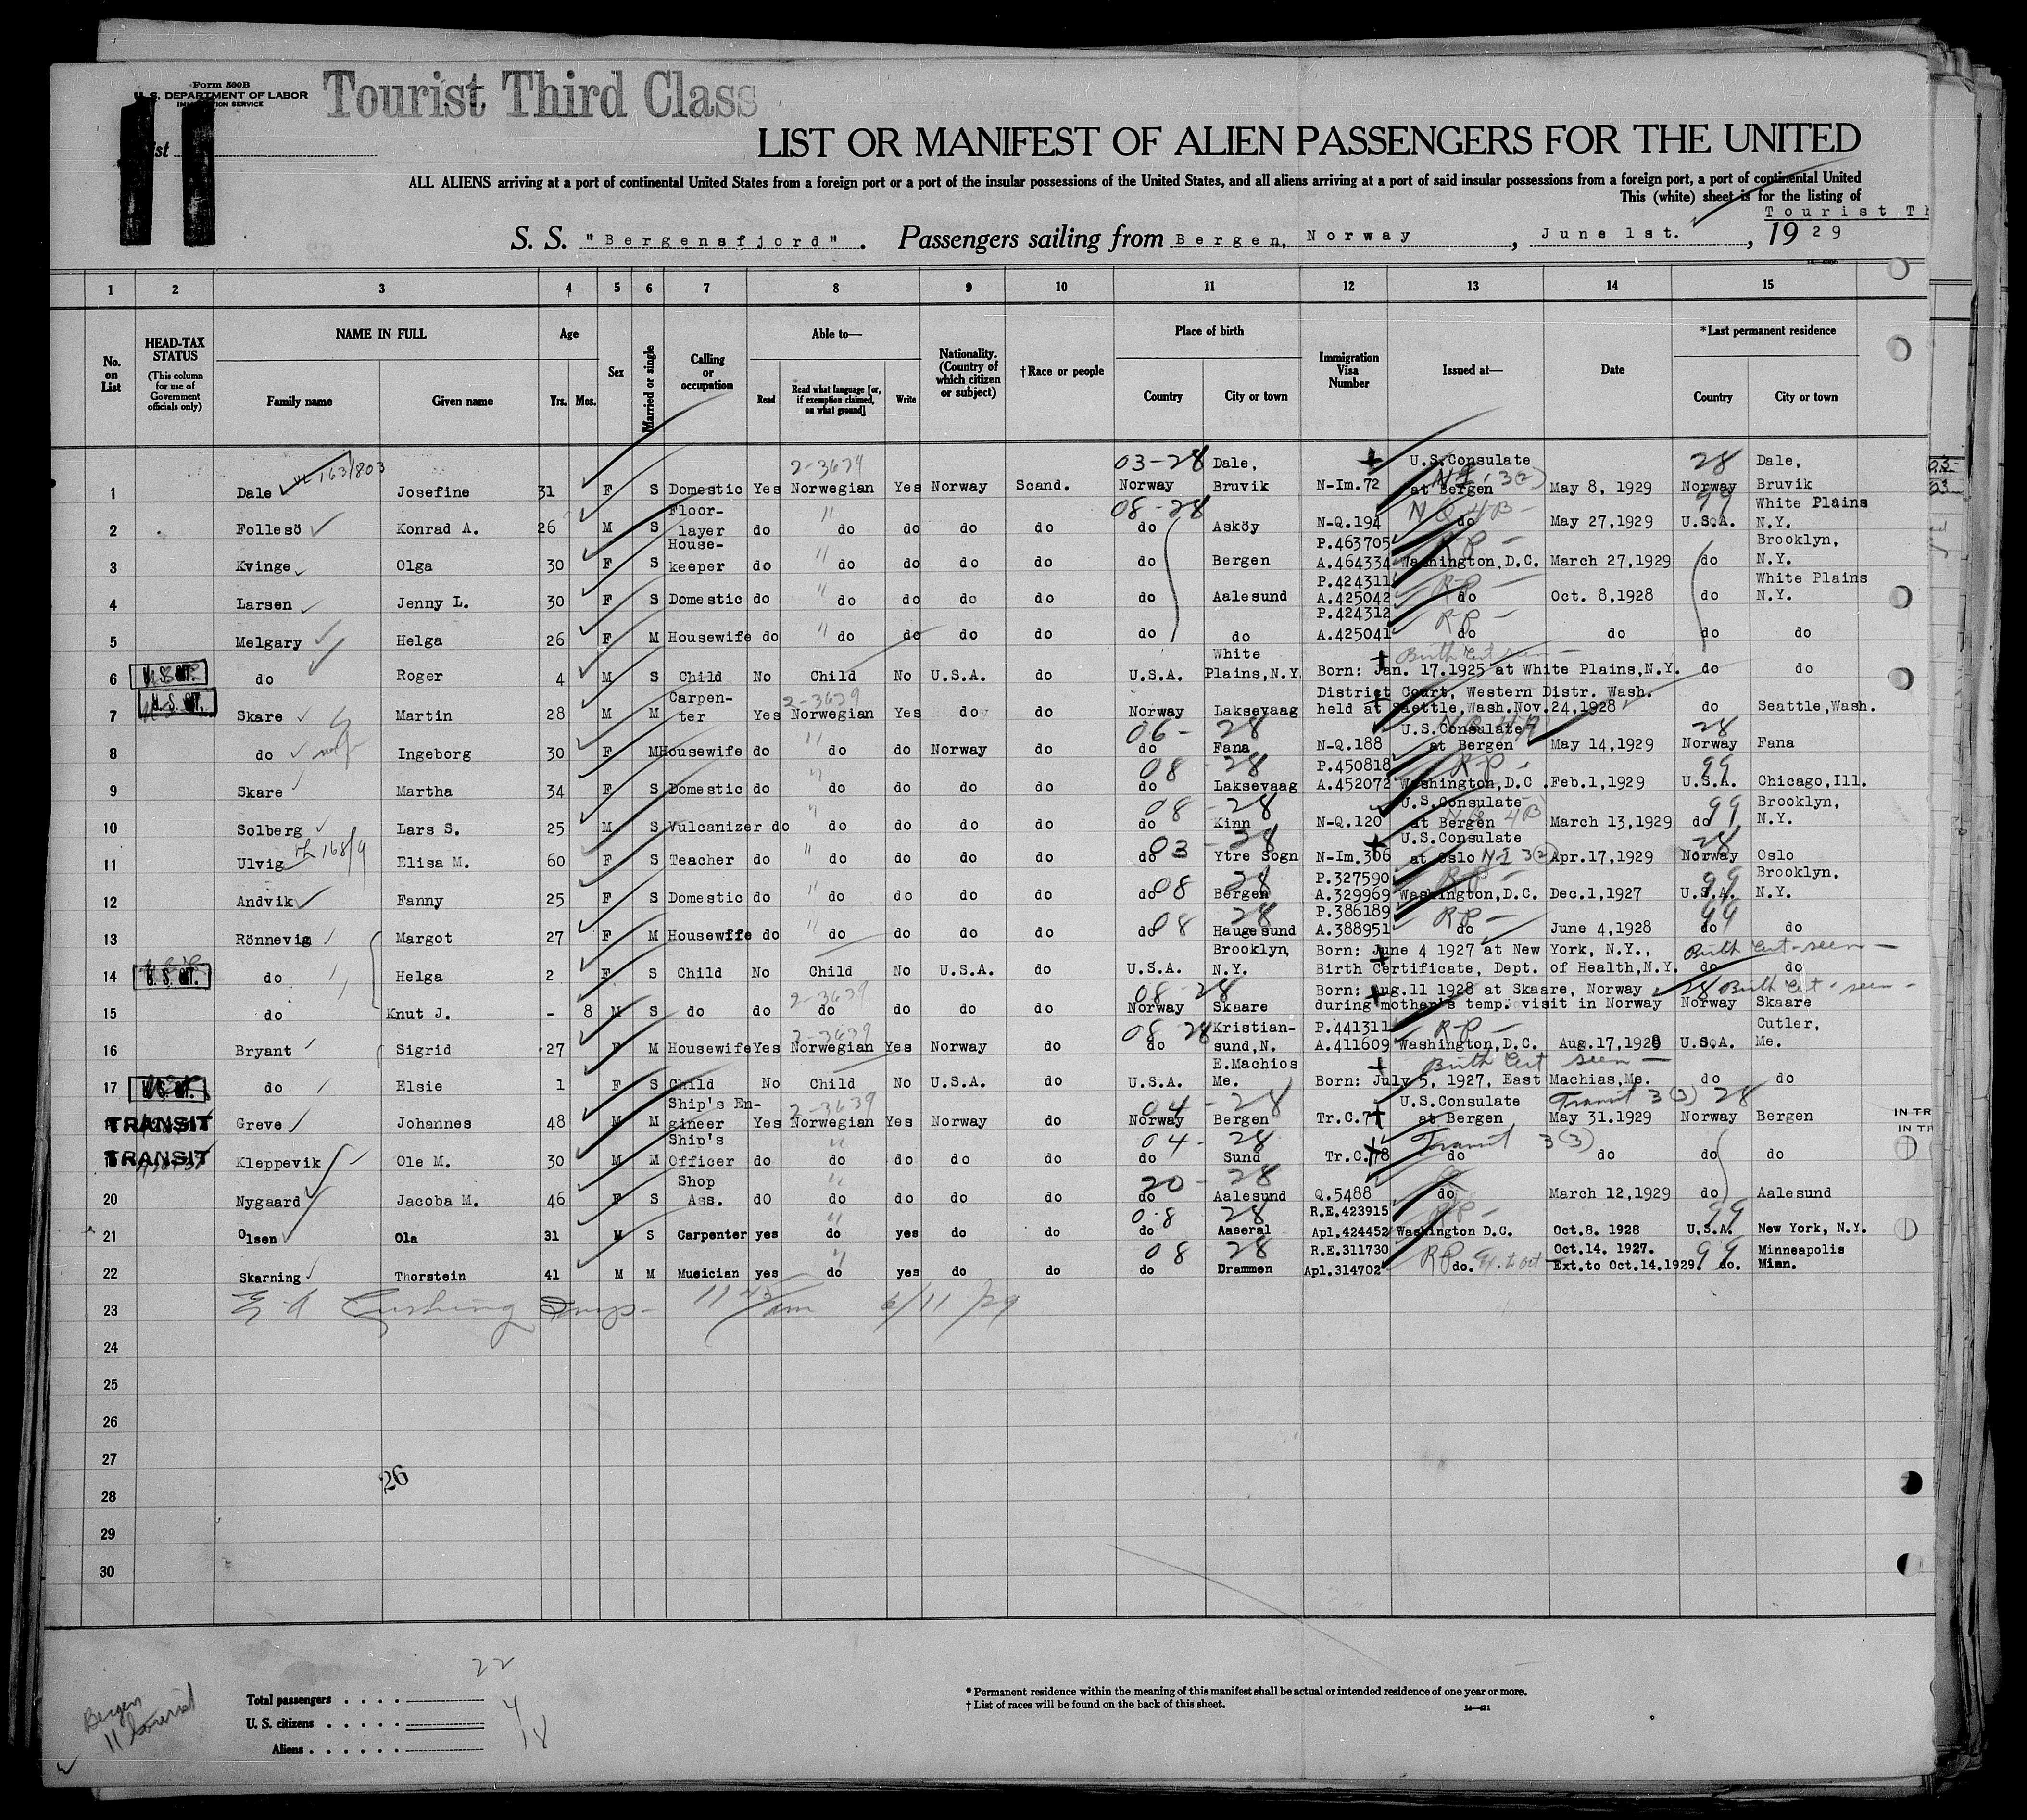 Form 500B
U. S. DEPARTMENT OF LABOR
IMMIGRATION SERVICE
Tourist Third Class
11
LIST OR MANIFEST OF ALIEN PASSENGERS FOR THE UNITED
ALL ALIENS arriving at a port of continental United States from a foreign port or a port of the insular possessions of the United States, and all aliens arriving at a port of said insular possessions from a foreign port, a port of continental United
This (white) sheet is for the listing of
Tourist Th
S. S. "Bergensfjord". Passengers sailing from Bergen, Norway, June 1st., 1929
1 2 3 4 5 6 7 8 9 10 11 12 13 14 15
No. on List
HEAD-TAX STATUS (This column for use of Government officials only)
NAME IN FULL
Family name Given name
Age
Yrs. Mos.
Sex
Married or single
Calling or occupation
Able to—
Read
Read what language [or, if exemption claimed, on what ground]
Write
Nationality. (Country of which citizen or subject)
†Race or people
Place of birth
Country City or town
Immigration Visa Number
Issued at—
Date
*Last permanent residence
Country City or town
1 Dale Josefine 31 F S Domestic Yes Norwegian Yes Norway Scand. 03-28 Norway Dale, Bruvik N-Im.72 U.S.Consulate at Bergen May 8, 1929 28 Norway Dale, Bruvik
2 Follesö Konrad A. 26 M S Floor-layer do do do do do 08-28 do Asköy N-Q.194 do May 27,1929 99 U.S.A. White Plains N.Y.
3 Kvinge Olga 30 F S House-keeper do do do do do do Bergen P.463705 A.464334 Washington,D.C. RP March 27,1929 do Brooklyn, N.Y.
4 Larsen Jenny L. 30 F S Domestic do do do do do do Aalesund P.424311 A.425042 do RP Oct. 8,1928 do White Plains N.Y.
5 Melgary Helga 26 F M Housewife do do do do do do do P.424312 A.425041 do RP do do do
6 U.S. CIT. do Roger 4 M S Child No Child No U.S.A. do U.S.A. White Plains,N.Y. Born: Jan. 17.1925 at White Plains,N.Y. Birth Cert seen do do
7 U.S. CIT. Skare Martin 28 M M Carpen-ter Yes 2-3639 Norwegian Yes do do Norway Laksevaag District Court, Western Distr. Wash. held at Saettle,Wash.Nov.24,1928 do Seattle,Wash.
8 do wife Ingeborg 30 F M Housewife do do do Norway do 06-28 do Fana N-Q.188 U.S.Consulate at Bergen May 14,1929 28 Norway Fana
9 Skare Martha 34 F S Domestic do do do do do 08-28 do Laksevaag P.450818 A.452072 Washington,D.C. RP Feb.1,1929 99 U.S.A. Chicago,Ill.
10 Solberg Lars S. 25 M S Vulcanizer do do do do do 08-28 do Kinn N-Q.120 U.S.Consulate at Bergen March 13,1929 do 99 Brooklyn, N.Y.
11 Ulvig Elisa M. 60 F S Teacher do do do do do 03-28 do Ytre Sogn N-Im.306 U.S.Consulate at Oslo Apr.17,1929 28 Norway Oslo
12 Andvik Fanny 25 F S Domestic do do do do do 08 28 do Bergen P.327590 A.329969 Washington,D.C. RP Dec.1,1927 99 U.S.A. Brooklyn, N.Y.
13 Rönnevig Margot 27 F M Housewife do do do do do 08 28 do Haugesund P.386189 A.388951 do RP June 4,1928 99 do do
14 U.S. CIT. do Helga 2 F S Child No Child No U.S.A. do U.S.A. Brooklyn, N.Y. Born: June 4 1927 at New York, N.Y., Birth Certificate, Dept. of Health,N.Y. Birth Cert-seen do do
15 do Knut J. - 8 M S do do 2-3639 do do do do 08-28 Norway Skaare Born: Aug.11 1928 at Skaare, Norway during mother's temp. visit in Norway 28 Birth Cert-seen Norway Skaare
16 Bryant Sigrid 27 F M Housewife Yes 2-3639 Norwegian Yes Norway do 08 28 do Kristian-sund,N. P.441311 A.411609 Washington,D.C. RP Aug.17,1928 U.S.A. Cutler, Me.
17 U.S. CIT. do Elsie 1 F S Child No Child No U.S.A. do U.S.A. E.Machios Me. Born: July 5, 1927, East Machias,Me. Birth Cert seen do do
TRANSIT Greve Johannes 48 M M Ship's En-gineer Yes 2-3639 Norwegian Yes Norway do 04-28 Norway Bergen Tr.C.77 U.S.Consulate at Bergen Transit 3(3) May 31.1929 28 Norway Bergen
TRANSIT Kleppevik Ole M. 30 M M Ship's Officer do do do do do 04-28 do Sund Tr.C.78 do Transit 3(3) do do do
20 Nygaard Jacoba M. 46 F S Shop Ass. do do do do do 20-28 do Aalesund Q.5488 do March 12,1929 do Aalesund
21 Olsen Ola 31 M S Carpenter yes do yes do do 08 28 do Aaseral R.E.423915 Apl.424452 Washington D.C. RP Oct.8. 1928 99 U.S.A. New York, N.Y.
22 Skarning Thorstein 41 M M Musician yes do yes do do 08 28 do Drammen R.E.311730 Apl.314702 RP do. Ex. to Oct Oct.14. 1927. Ext.to Oct.14.1929. 99 do. Minneapolis Minn.
23 Cushing Insp- 6/11/29
24
25
26
27
28
29
30
26
IN TR
IN TR
Total passengers . . . . 22
U. S. citizens . . . . . 4
Aliens . . . . . . 18
Bergen
11 tourist
* Permanent residence within the meaning of this manifest shall be actual or intended residence of one year or more.
† List of races will be found on the back of this sheet.